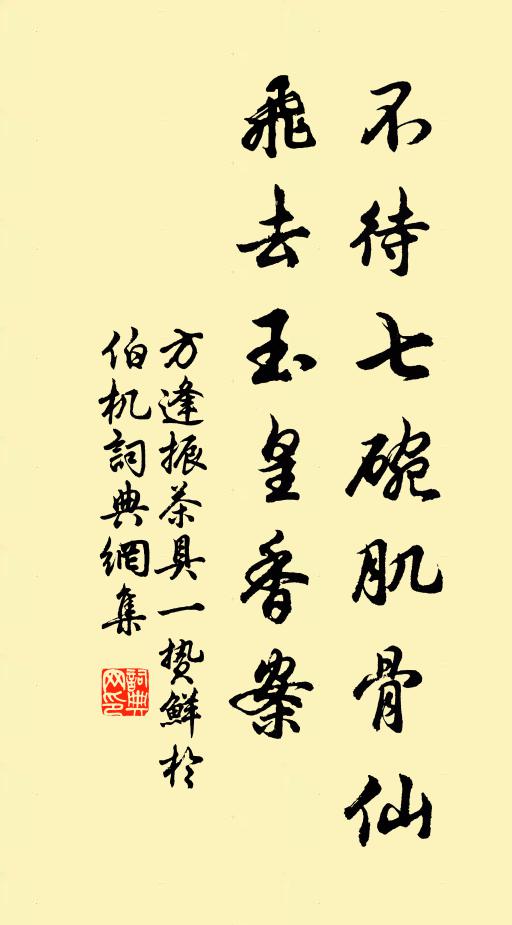 不待七碗肌骨仙
飛去玉皇香案
方逢振茶具一贽鲜於
伯机詞典網集
詞典网印